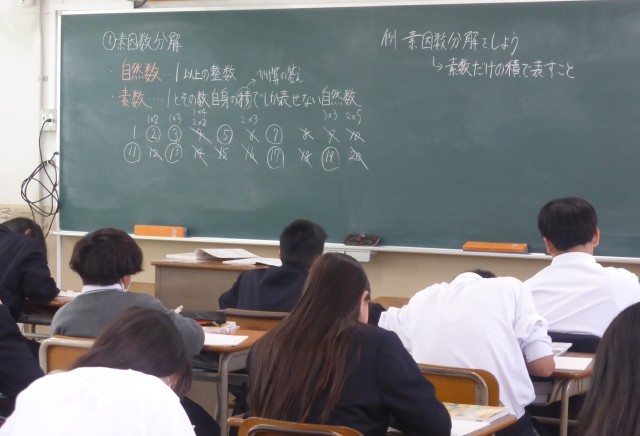 ①素因数分解
・自然数…1以上の整数
かけ算の答え
・素数…1とその数自身の積でしか表せない自然数
1×2 1×3 1×4 2×2 2×3 3×3 2×5
1 2 3 4 5 6 7 8 9 10
11 12 13 14 15 16 17 18 19 20
例 素因数分解をしよう
↳素数だけの積で表すこと